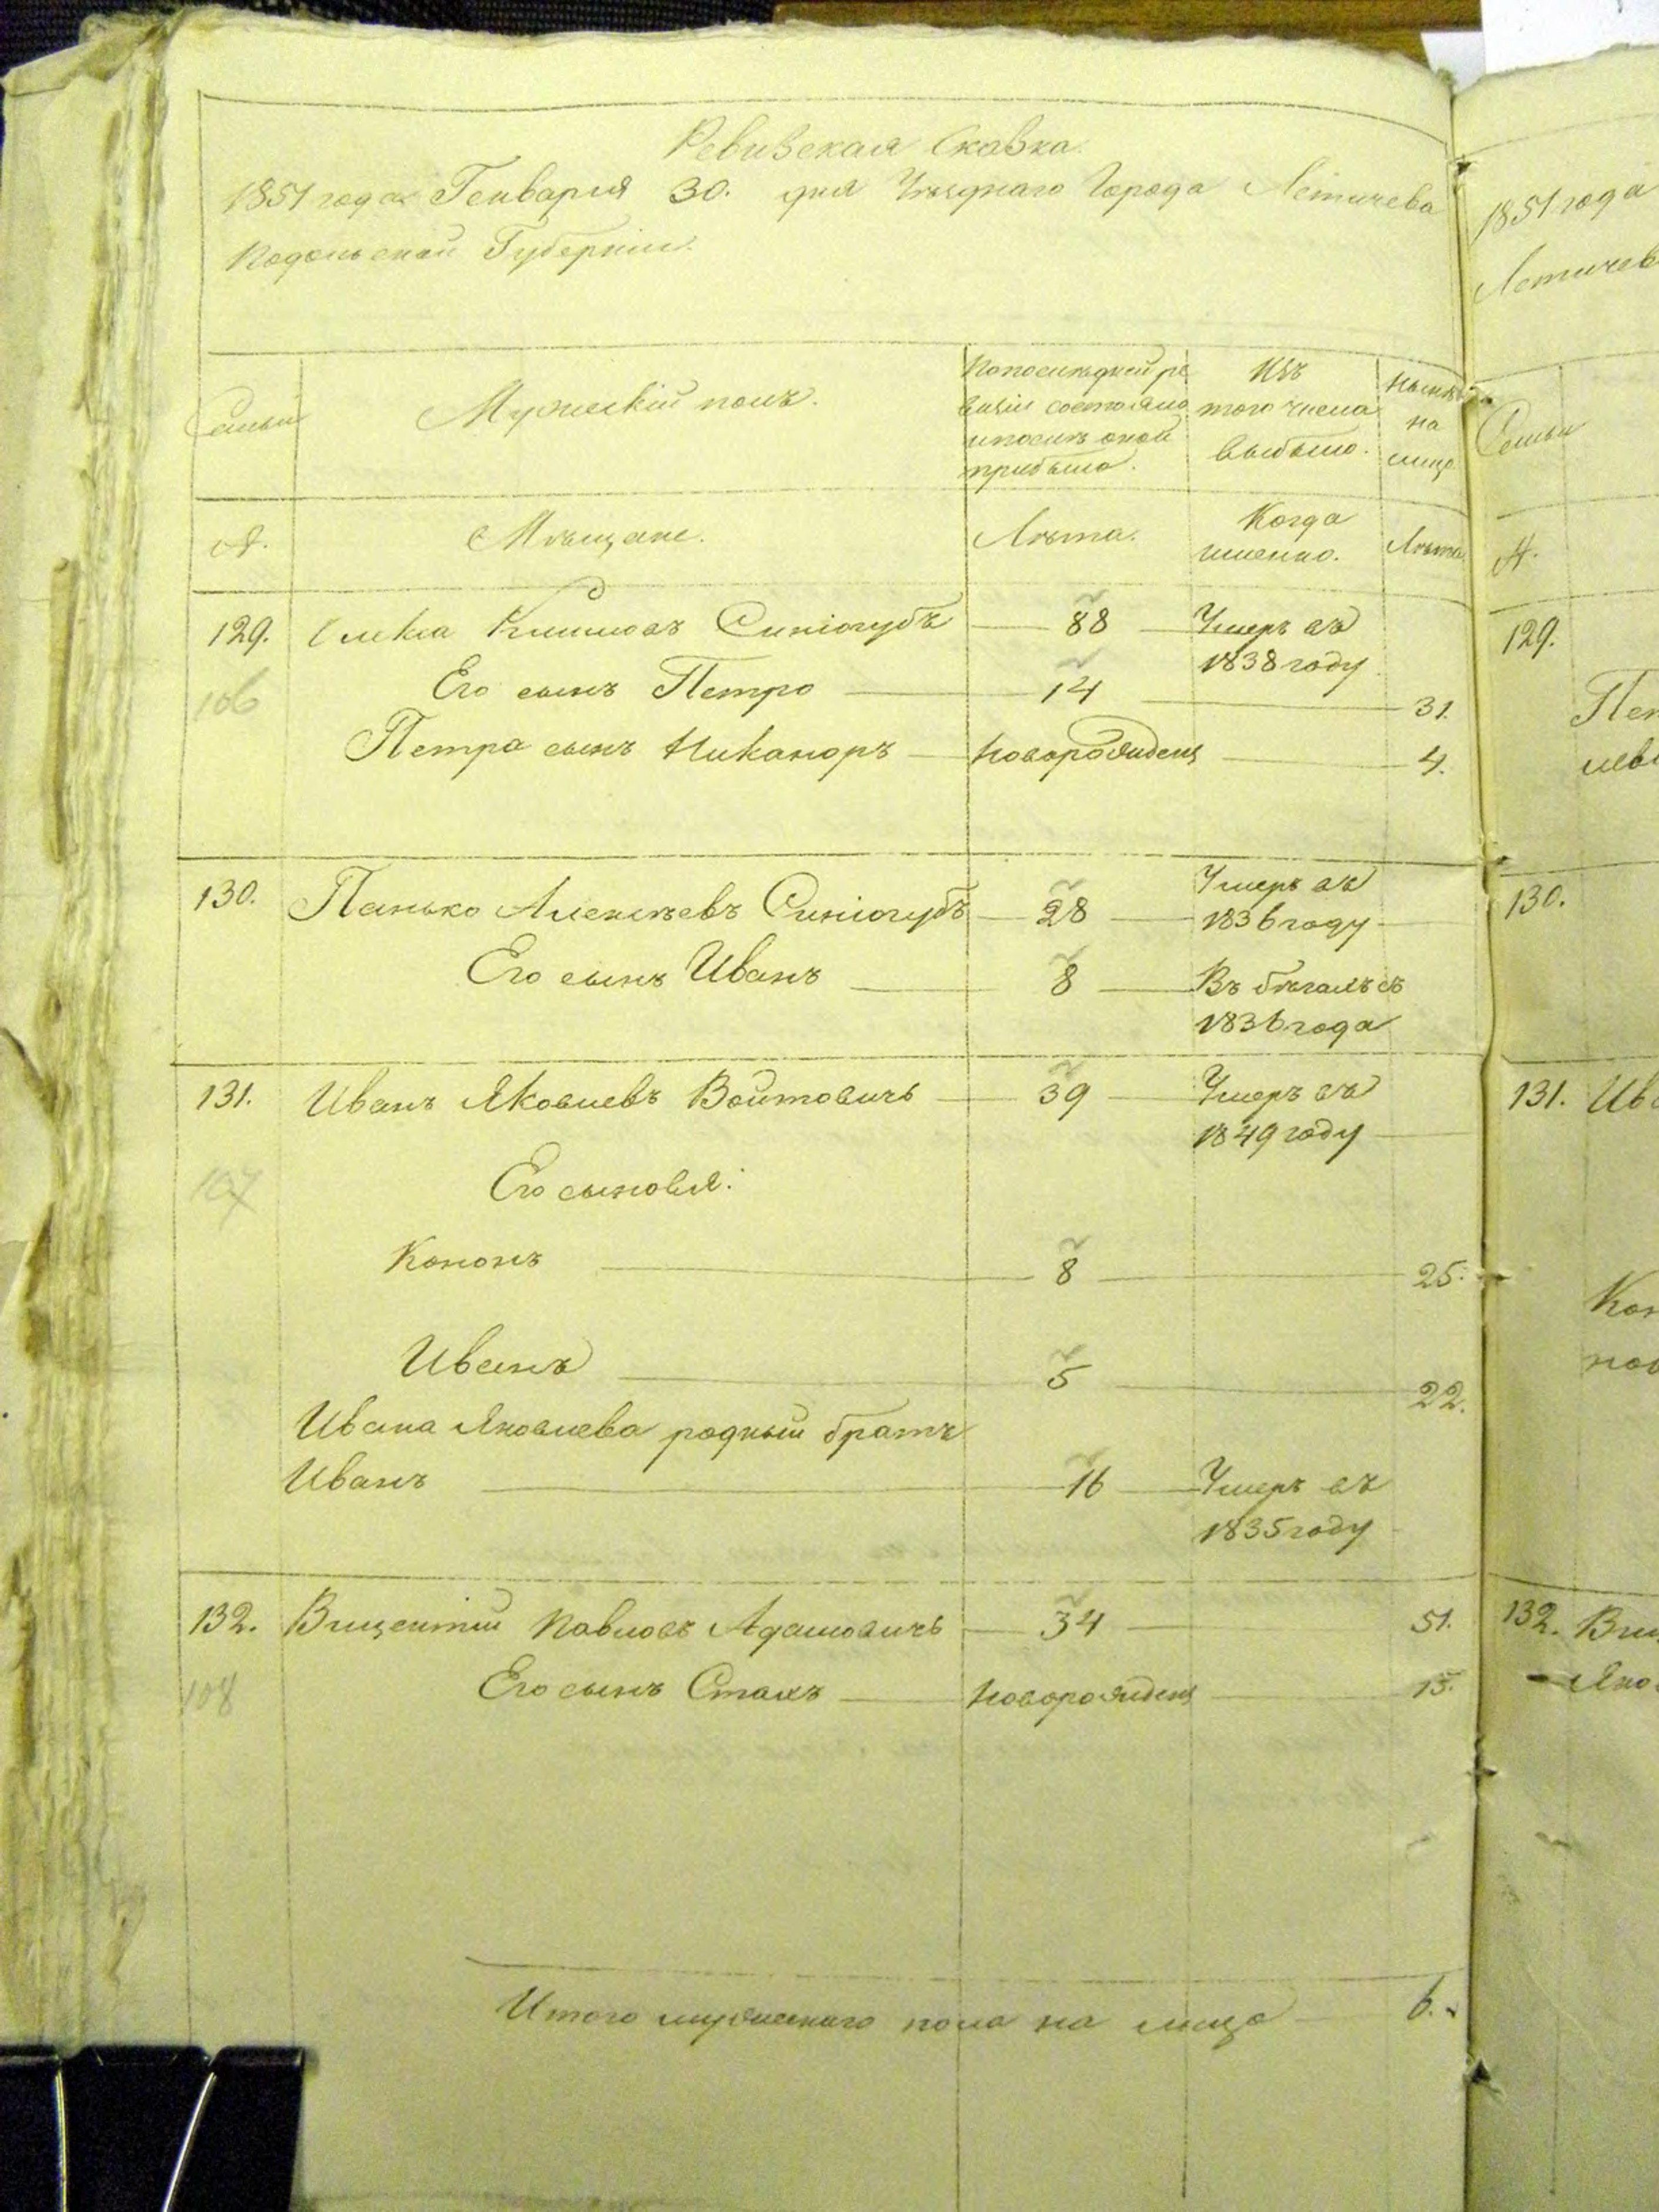 Ревизская Сказка.
1851 года Генваря 30. дня Уѣзднаго Города Летичева
Подольской Губерніи.
Семьи
Мужескій полъ.
По последней ре
визіи состояло
и послѣ оной
прибыло.
Изъ
того числа
выбыло.
Нынѣ
на
лицо
№.
Мѣщане.
Лѣта.
Когда
именно.
Лѣта
129. Олекса Климовъ Синіогубъ 88 Умеръ въ
1838 году
106 Его сынъ Петро 14 31.
Петра сынъ Никаноръ новорожденъ 4.
130. Панько Алексѣевъ Синіогубъ 28 Умеръ въ
1836 году
Его сынъ Иванъ 8 Въ бѣгахъ съ
1836 года
131. Иванъ Яковлевъ Войтовичъ 39 Умеръ въ
1849 году
107 Его сыновья:
Кононъ 8 25.
Иванъ 5 22.
Ивана Яковлева родный братъ
Иванъ 16 Умеръ въ
1835 году
132. Вицентій Павловъ Адамовичъ 34 51.
108 Его сынъ Стахъ новорожденъ 15.
Итого мужескаго пола на лицо 6.
1851 года
Летичев
Семьи
№.
129.
Пет
130.
131. Ива
Кон
132. Виц
Яко